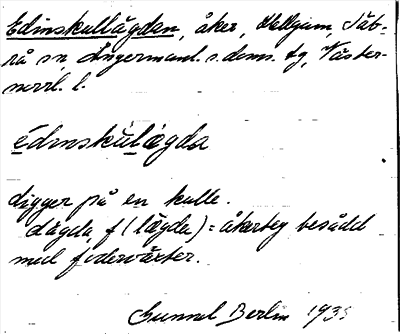 Edinskullägden, åker, Helgum, Säb-
rå sn, Ångermanl. s. doms. tg, Väster-
norrl. l.
edinskulægda
Ligger på en kulle.
Lägda, f (lægda) = åkerteg besådd
med foderväxter.
Gunnel Berlin 1935